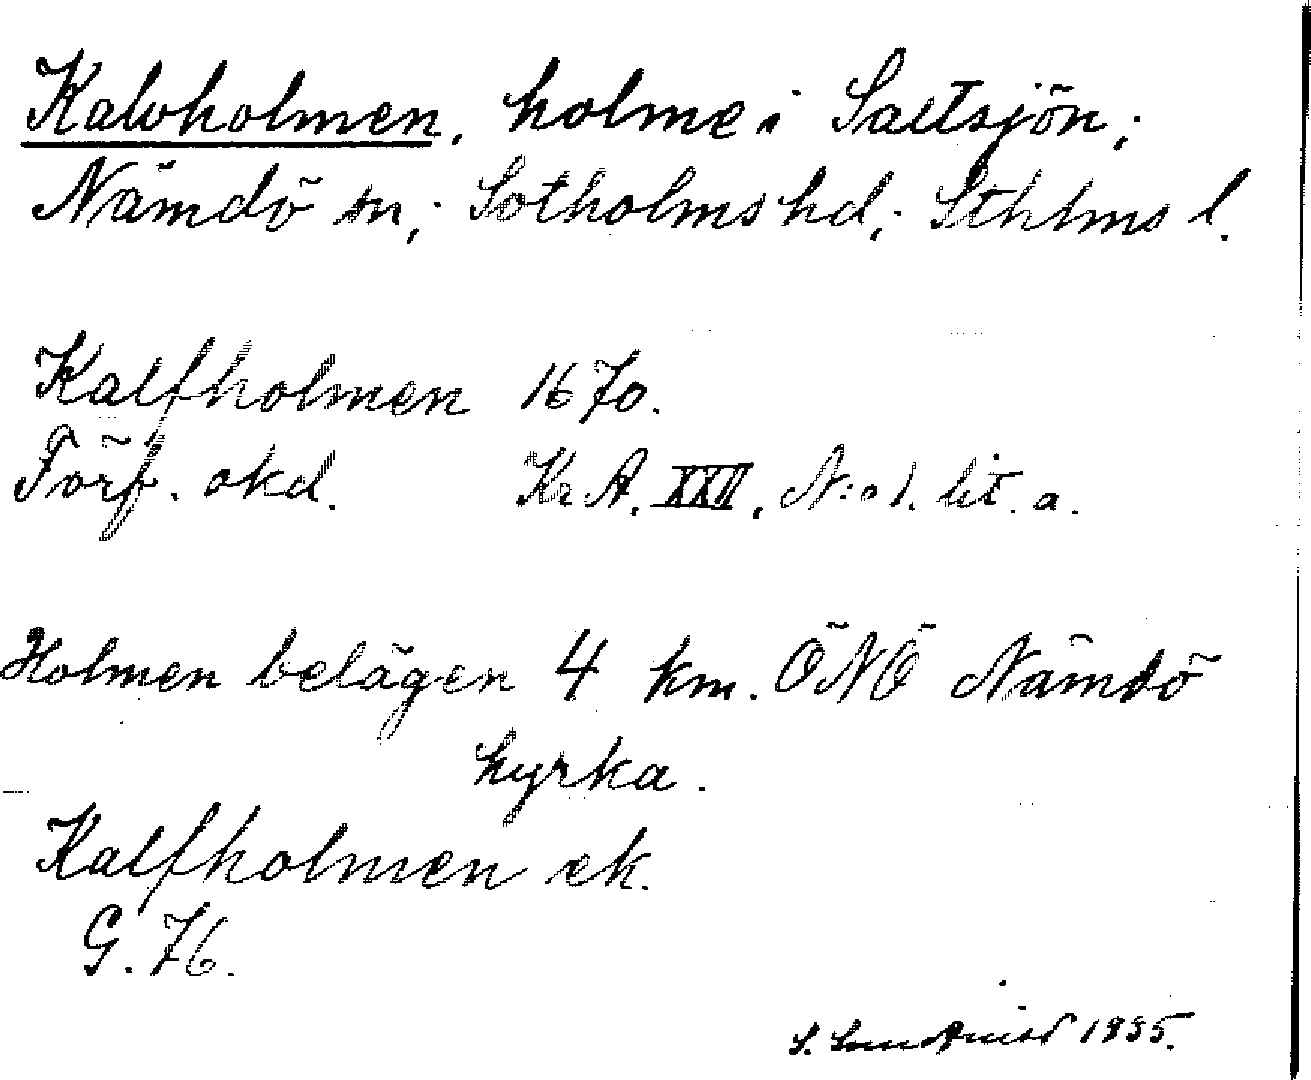 Kalvholmen, holme i Saltsjön;
Nämdö sn; Sotholms hd; Sthlms l.
Kalfholmen 1670.
Förf. okd. Kr A. XXII, N:o 1. lit. a.
Holmen belägen 4 km. ÖNÖ Nämdö
kyrka.
Kalfholmen ek.
G. 76.
S. Lundkvist 1935.